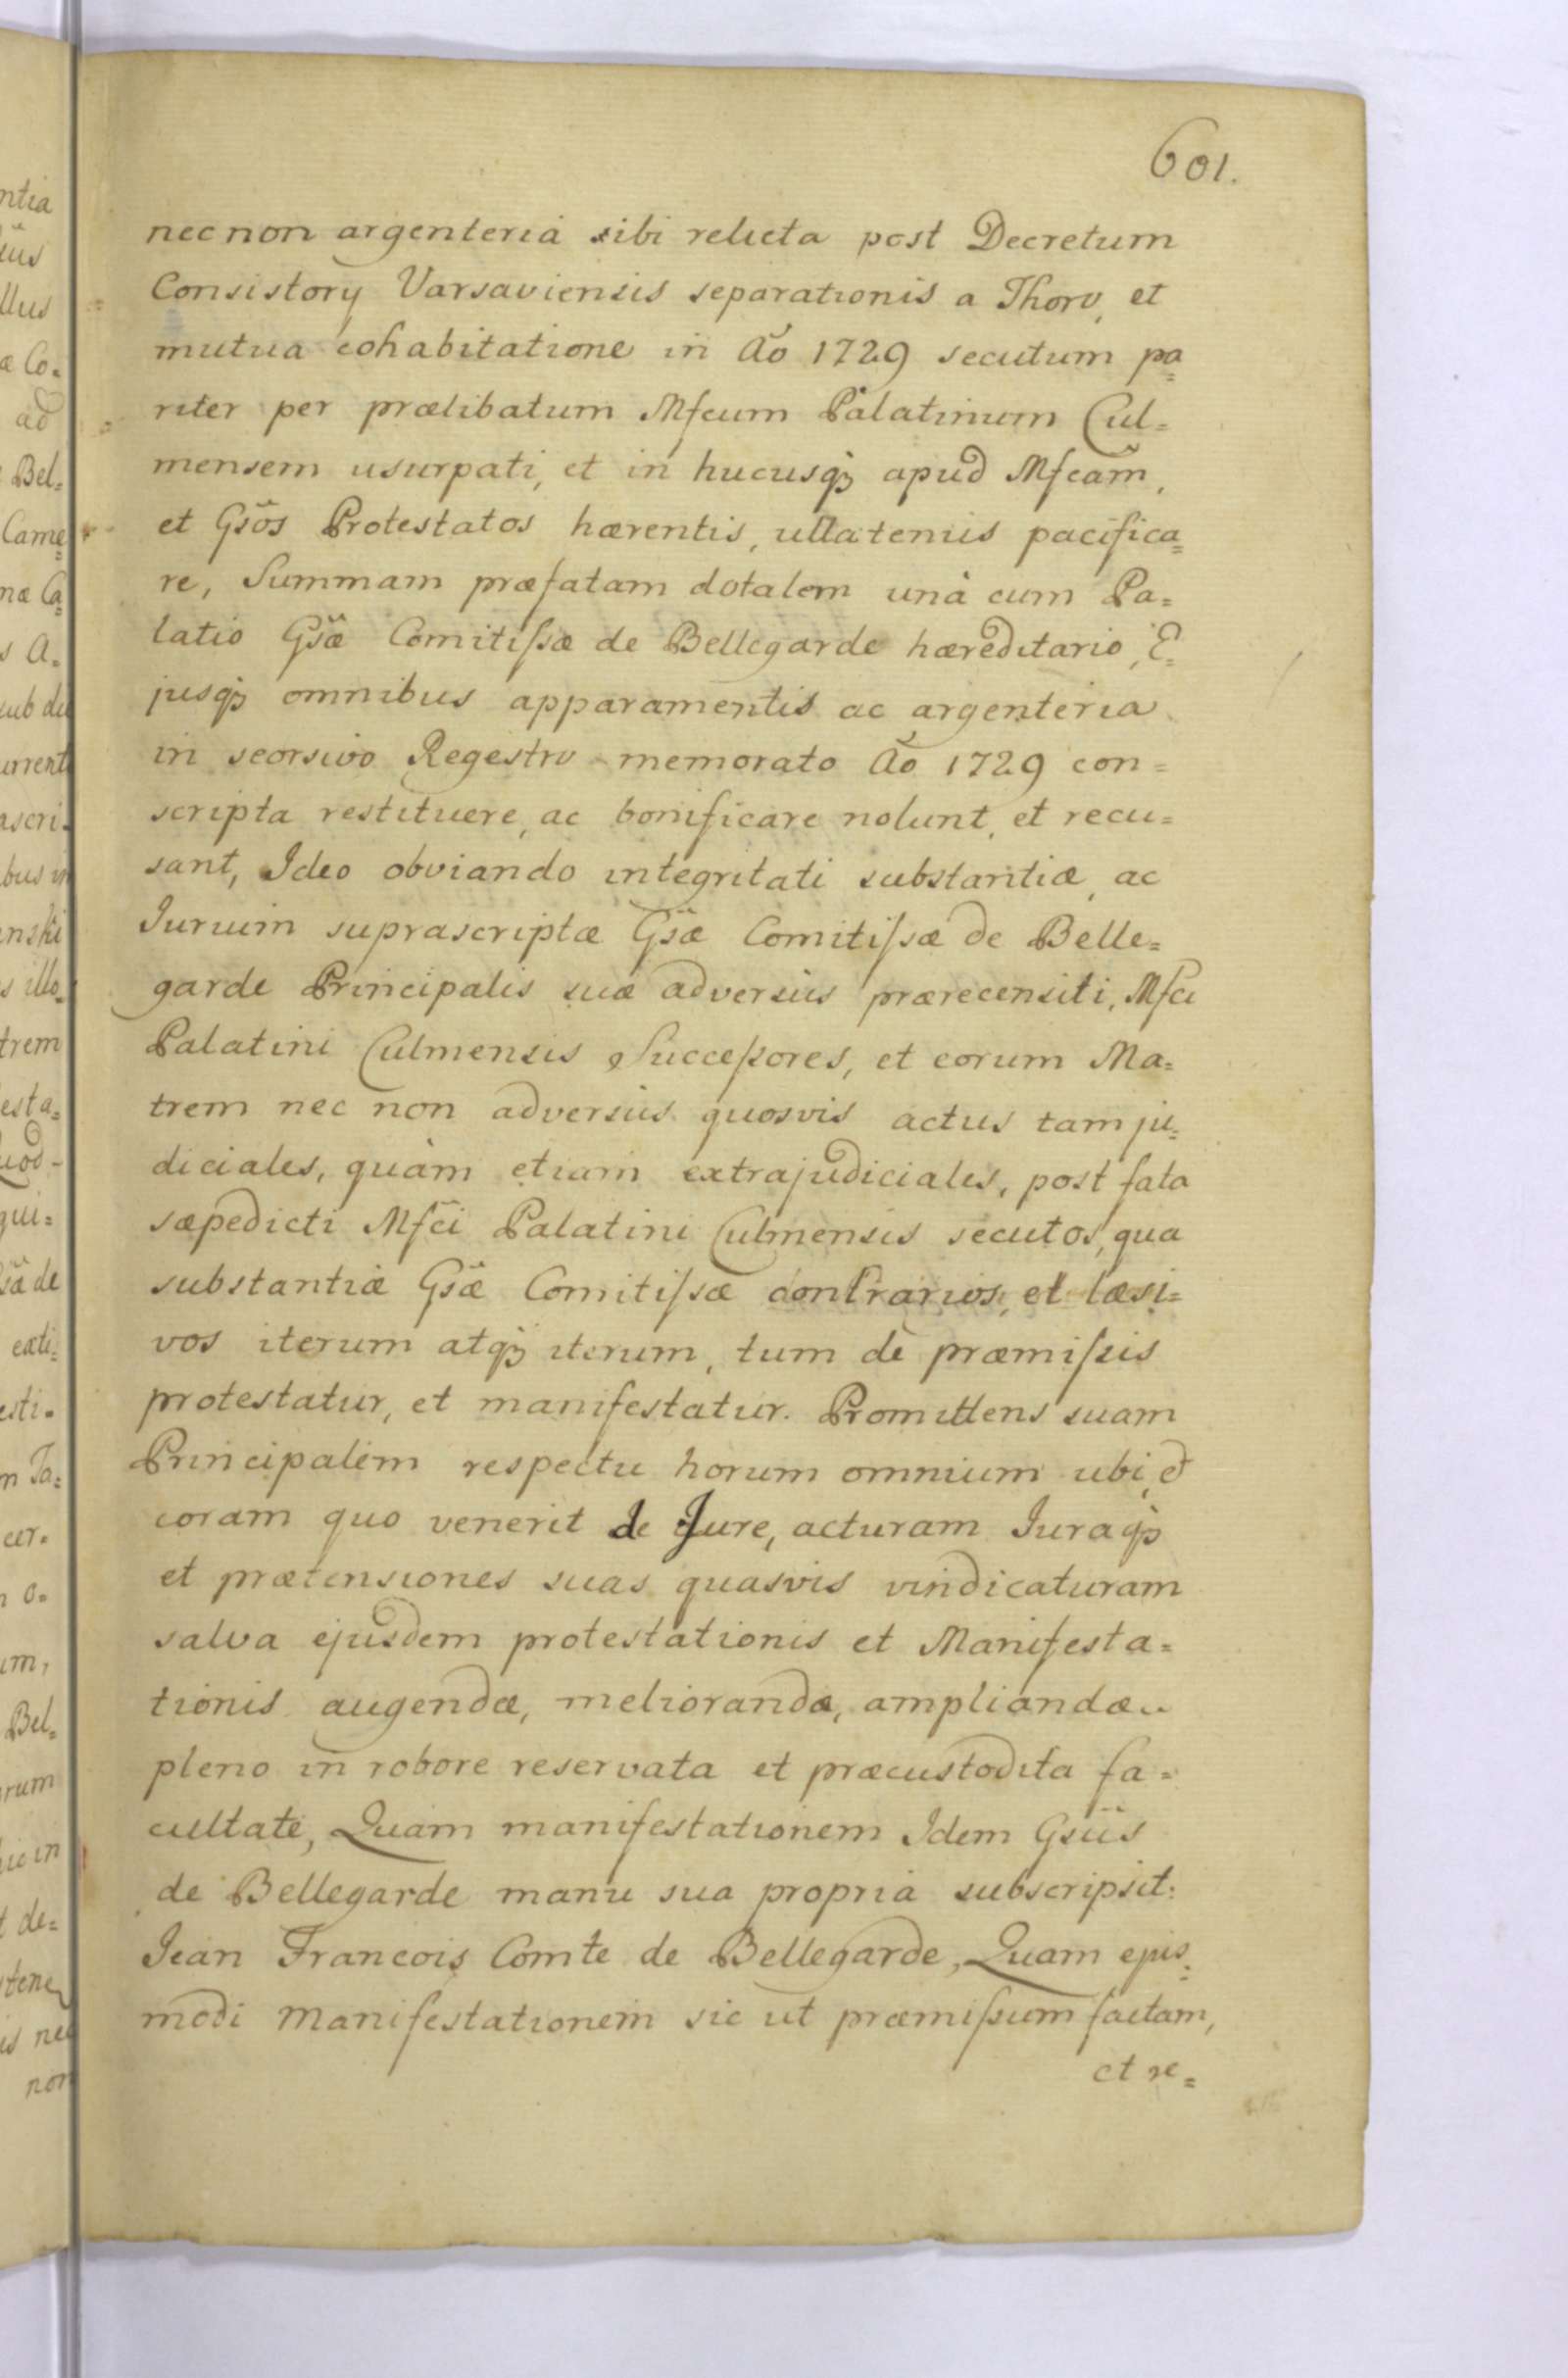 601.
nec non argenteria sibi relicta post Decretum
Consistorÿ Varsaviensis separationis a Thoro, et
mutua cohabitatione in Aõ 1729 secutum pa=
riter per prælibatum Mfcum Palatinum Cul=
mensem usurpati, et in hucusq3 apud Mfcam̃,
et Gsõs Protestatos hærentis, ullatenus pacifica=
re, Summam præfatam dotalem unà cum Pa=
latio Gsæ̃ Comitiſsæ de Bellegarde hæreditario, E=
jusq3 omnibus apparamentis ac argenteria
in seorsivo Regestro memorato Aõ 1729 con=
scripta restituere, ac bonificare nolunt, et recu=
sant, Ideo obviando integritati substantiæ, ac
Iurium suprascriptæ Gsæ̃ Comitiſsæ de Belle=
garde Principalis suæ adversus prærecensiti, Mfci
Palatini Culmensis Succeſsores, et eorum Ma=
trem nec non adversus quosvis actus tam ju=
diciales, quàm etiam extrajudiciales, post fata
sæpedicti Mfc̃i Palatini Culmensis secutos, qua
substantiæ Gsæ̃ Comitiſsæ contrarios, et læsi=
vos iterum atq3 iterum, tum de præmiſsis
protestatur, et manifestatur. Promittens suam
Principalem respectu horum omnium ubi, et
coram quo venerit de Jure, acturam Iuraq3
et prætensiones suas quasvis vindicaturam
salva ejusdem protestationis et Manifesta=
tionis augendæ, meliorandæ, ampliandæ
pleno in robore reservata et præcustodita fa=
cultate, Quam manifestationem Idem Gsũs
de Bellegarde manu sua propria subscripsit:
Jean Francois Comte de Bellegarde, Quam ejus=
modi Manifestationem sic ut præmiſsum factam,
et re=